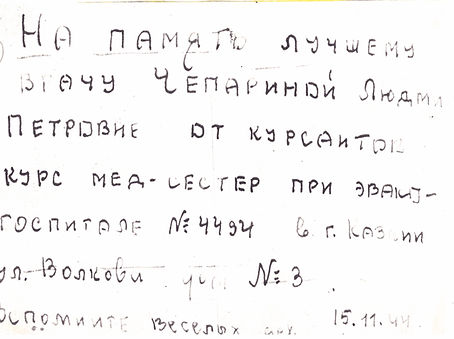 На память лучшему
врачу Чепариной Людми
Петровне от курсанток
курс мед-сестер при эвако-
госпитале № 4494 в г. Казани
ул. Волкова № 3.
Вспомните веселых 15.11.44.